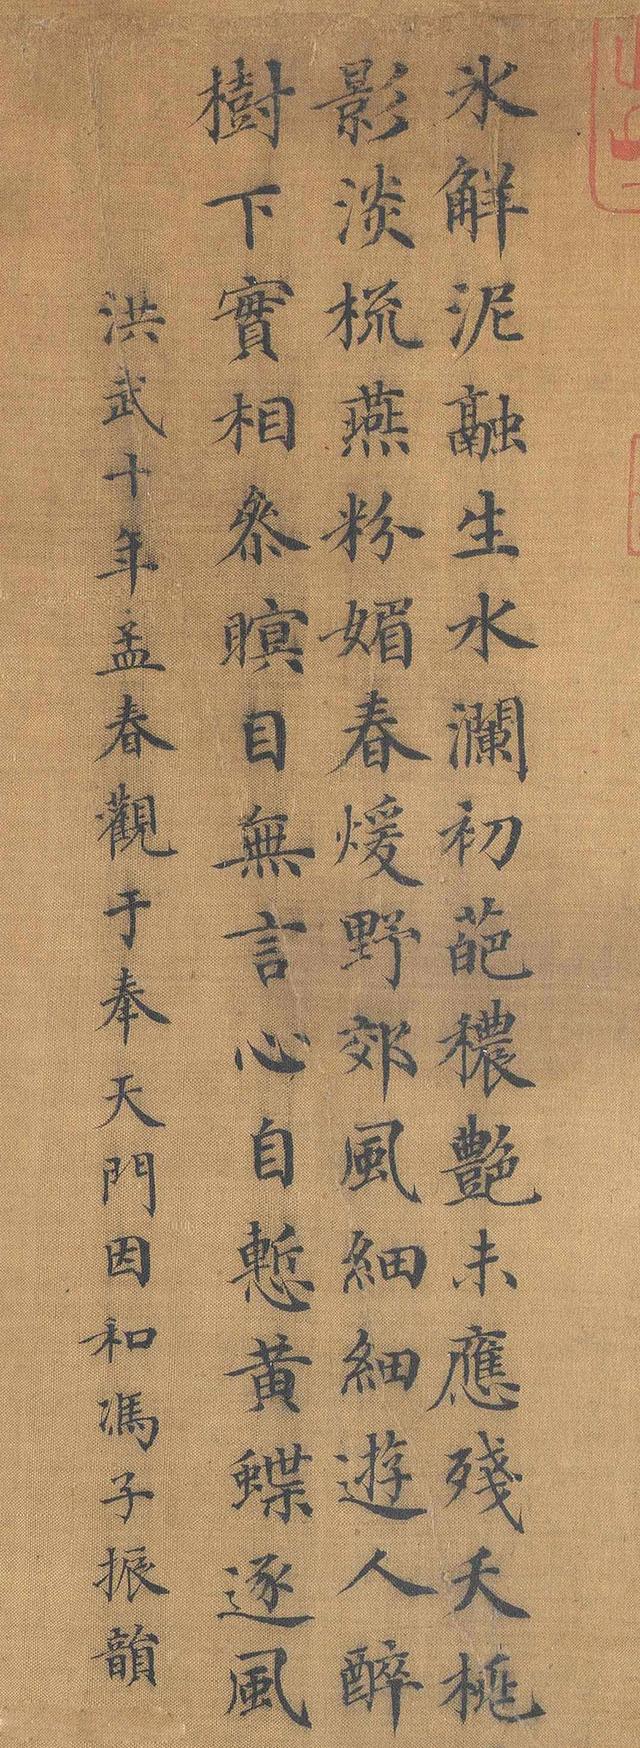 氷觧泥融生水瀾初葩穠艷未應殘夭桃
影淡梳燕粉媚春煖野郊風細細遊人醉
樹下實相叅瞑目無言心自慙黄蝶逐風
洪武十年孟春觀于奉天門因和馮子振韻